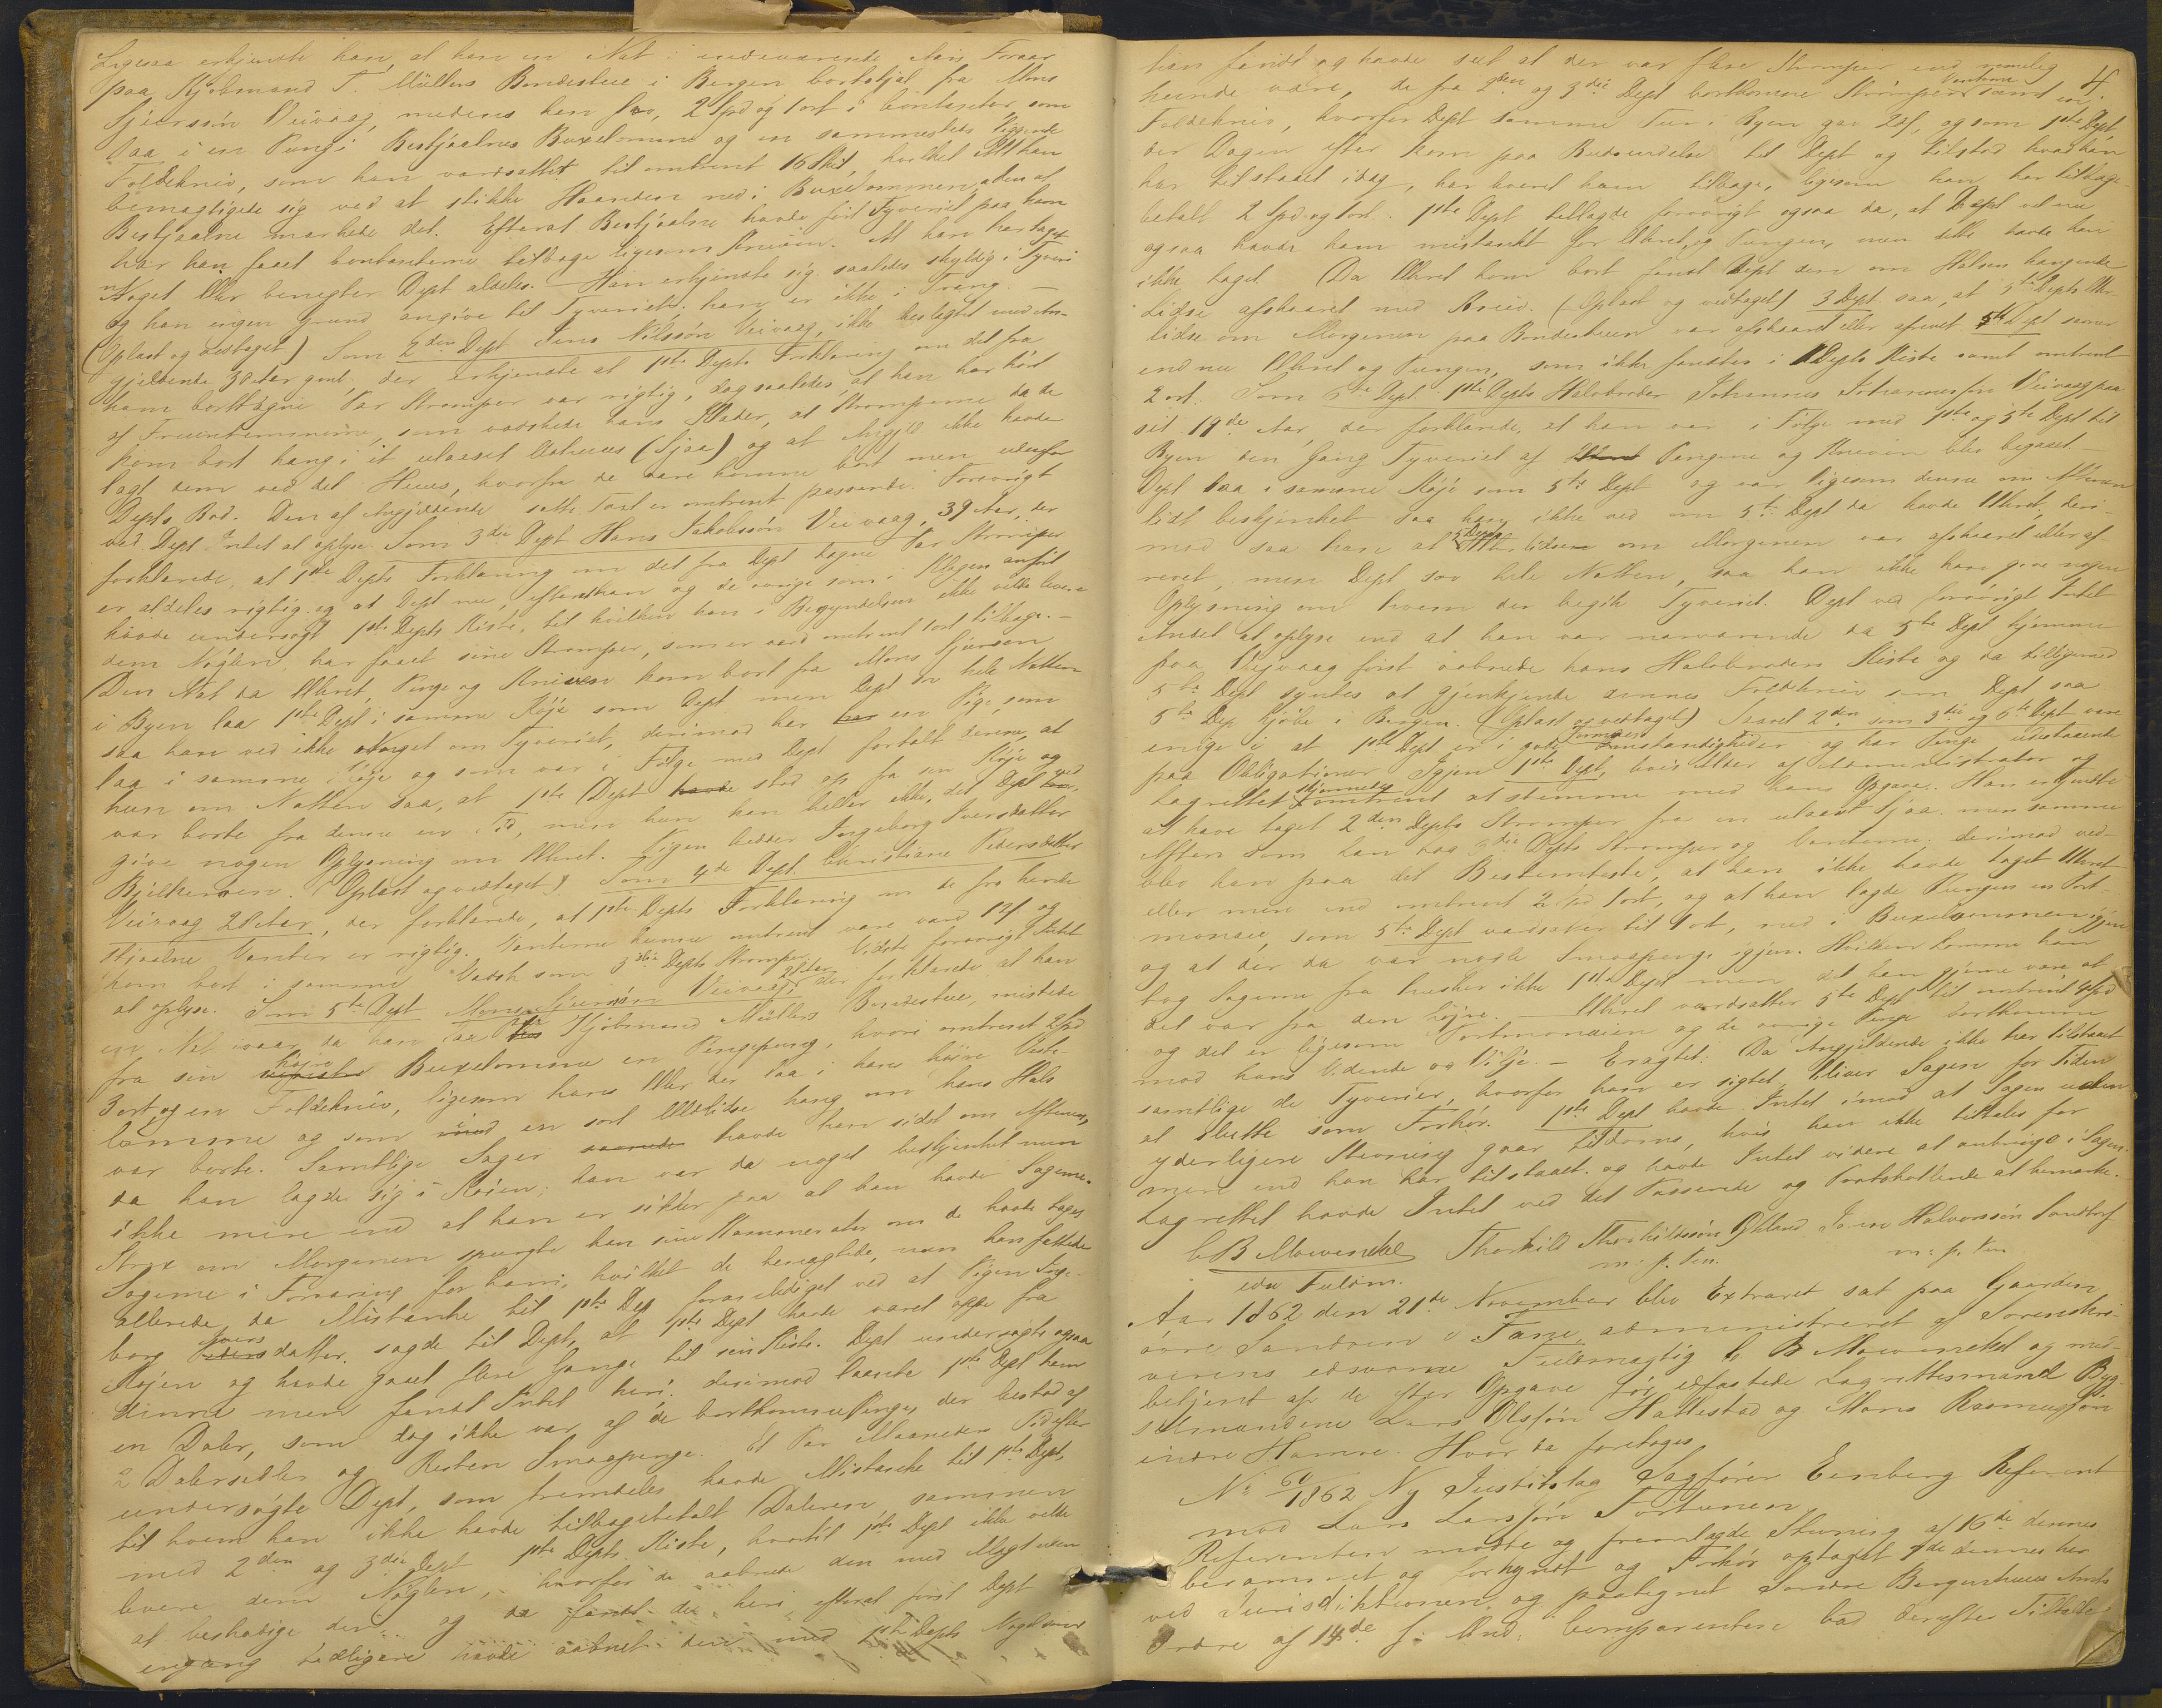 Ligesaa erkjendte han, at han en Nat i indeværende Aars Foraar
paa Kjøbmand T. Müllers Bondestue i Bergen bortstjal fra Mons
Gjerssøn Veivaag, medens han sov, 2 Spd og 1 ort i contanter, som
laa i en Pung i Bestjaalnes Buxelomme og en sammesteds liggende
Foldekniv, som han værdsatte til omtrent 16 skil, hvilket Alt han
bemægtigede sig ved at stikke Haanden ned i Buxelommen uden at
Bestjaalne mærkede det. Efterat Bestjaalne havde fört Tyveriet paa ham
har han faaet contanterne tilbage ligesom Kniven. At han har taget
Noget Uhr benegter Dept aldeles. Han erkjendte sig saaledes skyldig i Tyveri
og han ingen Grund angive til Tyveriet; han er ikke i Trang. —
(Oplæst og vedtaget) Som 2den Dept Jens Nilssøn Veivaag, ikke beslægtet med An-
gjeldende, 30 Aar gml. der erkjendte at 1ste Depts Forklaring om det fra
ham borttagne Par Strømper var rigtig, dog saaledes, at han har hört
af Fruentimmerne, som vadskede hans Klæder, at Strømperne da de
kom bort hang i et ulaaset Udhuus (Sjaa) og at Angjeld ikke havde
lagt dem ved det Huus, hvorfra de vare komne bort men udenfor
Depts Bod. Den af Angjeldende satte Taxt er omtrent passende. Forøvrigt
ved Dept Intet at oplyse. Som 3die Dept Hans Jakobssøn Veivaag, 39 Aar, der
forklarede, at 1ste Depts Forklaring om det fra Dept tagne Par Strømper
er aldeles rigtig og at Dept nu, efterat han og de øvrige som i Klagen anført
havde undersøgt 1ste Depts Kiste, til hvilken han i Begyndelsen ikke vilde levere
dem Nøglen, har faaet sine Strømper, som er værd omtrent 1 ort tilbage. —
Den Nat da Uhret, Penge og Kniven kom bort fra Mons Gjerssen
i Byen laa 1ste Dept i samme Køje som Dept men Dept sov hele Natten
saa han ved ikke Noget om Tyveriet, derimod har en Pige, som
laa i samme Køje og som var i Følge med Dept fortalt denne, at
hun om Natten saa, at 1ste Dept stod op fra sin Køje og
var borte fra denne en Tid, men hun kan heller ikke, det Dept ved
give nogen Oplysning om Uhret. Pigen hedder Ingeborg Iversdatter
Bjelkerøen. (Oplæst og vedtaget) Som 4de Dept Christiane Pedersdatter
Veivaag 28 Aar, der forklarede, at 1ste Depts Forklaring om de fra hende
stjaalne Vanter er rigtig. Vanterne kunne omtrent være værd 12 s og
kom bort i samme Vadsk som 3die Depts Strømper. Vidste forøvrigt Intet
at oplyse. Som 5te Dept Mons Gjerssøn Veivaag, der forklarede at han
en Nat ivaar da han laa paa Kjøbmand Müllers Bondestue, mistede
fra sin højre Buxelomme en Pengepung, hvori omtrent 2 Spd
3 ort og en Foldekniv, ligesom hans Uhr der laa i hans højre Veste-
lomme og som med en sort Uldlidse hang om hans Hals
var borte. Samtlige Sager havde han sidst om Aftenen,
da han lagde sig i Køien; han var da noget beskjenket men
ikke mere end at han er sikker paa at han havde Sagerne.
Strax om Morgenen spurgte han sine Kamerater om de havde taget
Sagerne i Forvaring for ham, hvilket de benegtede, men han fattede
allerede da Mistanke til 1ste Dept foranlediget ved at Pigen Inge-
borg Iversdatter sagde til Dept, at 1ste Dept havde været oppe fra
Køjen og havde gaaet flere Gange til sin Kiste. Dept undersøgte ogsaa
denne men fandt Intet heri; derimod laante 1ste Dept ham
en Daler, som dog ikke var af de bortkomne Penge, der bestod af
2 Dalersedler og Resten Smaapenge. Et Par Maaneder Tid efter
undersøgte Dept, som fremdeles havde Mistanke til 1ste Dept,
til hvem han ikke havde tilbagebetalt Daleren, sammen
med 2den og 3die Dept 1ste Depts Kiste, hvortil 1ste Dept ikke vilde
levere dem Nøglen, hvorfor de aabnede den med Magt uden
at beskadige den og da fandt de heri, efterat først Dept
engang tidligere havde aabnet den med 1ste Depts Nøgle
4.
han fandt og havde seet at der var flere Strømper end nemlig
kunde være, de fra 2den og 3die Dept bortkomne Strømper Vanterne samt en
Foldekniv, hvorfor Dept samme Tur i Byen gav 24 s, og som 1ste Dept
der Dagen efter kom paa Budsendelse til Dept og tilstod hvad han
har tilstaaet idag, har leveret ham tilbage, ligesom han har tilbage-
betalt 2 Spd og 1 ort. 1ste Dept tillagde forøvrigt ogsaa da, at Dept vel nu
ogsaa havde ham mistænkt for Uhret og Pungen, men det havde han
ikke taget. Da Uhret kom bort fandt Dept den om Halsen hængende
Lidse afskaaret med Kniv. (Oplæst og vedtaget) 3 Dept. saa, at 5te Depts Uhr-
lidse om Morgenen paa Bondestuen var afskaaret eller afrevet. 5te Dept savner
endnu Uhret og Pungen, som ikke fandtes i 1 Depts Kiste samt omtrent
2 ort. Som 6te Dept 1ste Depts Halvbroder Johannes Johannesssøn Veivaag paa
sit 19de Aar, der forklarede, at han var i Følge med 1ste og 5te Dept til
Byen den Gang Tyveriet af Pengene og Kniven blev begaaet. —
Dept laa i samme Køje som 5te Dept og var ligesom denne om Aftenen
lidt beskjenket saa han ikke ved om 5te Dept da havde Uhret, deri-
mod saa han at 5 Depts Uhrlidse om Morgenen var afskaaret eller af-
revet, men Dept sov hele Natten, saa han ikke kan give nogen
Oplysning om hvem der begik Tyveriet. Dept ved forøvrigt Intet
Andet at oplyse end at han var nærværende da 5te Dept hjemme
paa Veivaag først aabnede hans Halvbroders Kiste og da tilligemed
5te Dept syntes at gjenkjende dennes Foldekniv som Dept saa
5te Dep kjøbe i Bergen. (Oplæst og vedtaget) Saavel 2den som 3die og 6te Dept vare
enige i at 1ste Dept er i gode Formues omstændigheder og har Penge udestaaende
paa Obligationer. Igjen 1ste Dept, hvis Alder af Administrator og
Lagrettet skjønnedes omtrent at stemme med hans Opgave. Han erkjendte
at have taget 2den Depts Strømper fra en ulaast Sjaa men samme
Aften som han tog 3die Depts Strømper og Vanterne; derimod ved-
blev han paa det Bestemteste, at han ikke havde taget Uhret
eller mere end omtrent 2 Spd 1 ort, og at han lagde Pungen en Port-
monnaie, som 5te Dept værdsætter til 1 ort, ned i Buxelommen igjen
og at der da var nogle Smaapenge igjen. Hvilken Lomme han
tog Sagerne fra husker ikke 1ste Dept men det kan gjerne være at
det var fra den højre. — Uhret værdsætter 5te Dept til omtrent 4 Spd
og det er ligesom Portmonnaien og de øvrige Penge bortkommen
mod hans Vidende og Vilje. — Eragtet: Da Angjeldende ikke har tilstaaet
samtlige de Tyverier, hvorfor han er sigtet, bliver Sagen for Tiden
at slutte som Forhör. 1ste Dept havde Intet imod at Sagen uden
yderligere Stevning gaar tildoms, hvis han ikke tiltales for
mere end han har tilstaaet og havde Intet videre at anbringe i Sagen.
Lagrettet havde Intet ved det Passerede og Protokollerede at bemærke.
C B Mowinckel Thorkild Thorkildssøn Jone Halvorssøn
edsv Fuldm. m. p. Pen. m. p. Pen
Aar 1862 den 21de November blev Extraret sat paa Gaarden
øvre Sandven i Fane, administreret af Sorenskri-
verens edsvorne Fuldmægtig C B Mowinckel og med-
betjent af de efter Opgave før edfæstede Lagrettesmænd Byg-
selmændene Lars Olssøn Hattestad og Mons Rasmussøn
indre Hamre. Hvor da foretoges
No 61/1862 Ny Justitssag Sagfører Eenberg Referent
mod Lars Larssøn Fortunen
Referenten mødte og fremlagde Stevning af 16de dennes
berammet og forkyndt og Forhör optaget 7de dennes her
ved Jurisdiktionen, og paategnet Søndre Bergenhuus Amts
Ordre af 14de s. Md. Comparenten bad derefter Tiltalte